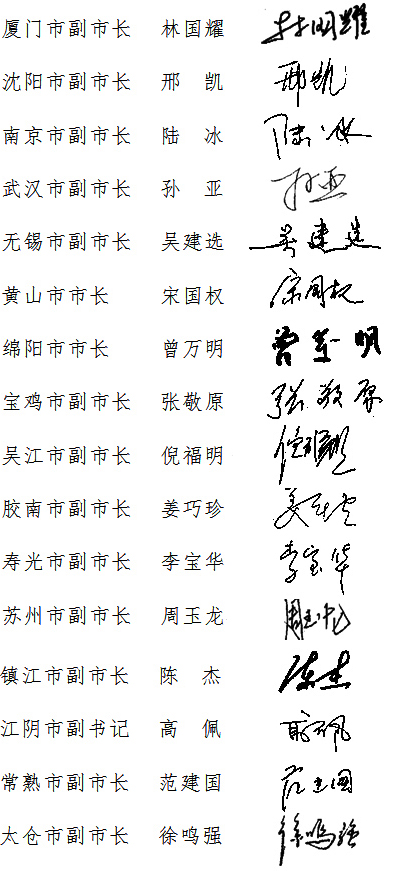 厦门市副市长 林国耀 林国耀
沈阳市副市长 邢凯 邢凯
南京市副市长 陆冰 陆冰
武汉市副市长 孙亚 孙亚
无锡市副市长 吴建选 吴建选
黄山市市长 宋国权 宋国权
绵阳市市长 曾万明 曾万明
宝鸡市副市长 张敬原 张敬原
吴江市副市长 倪福明 倪福明
胶南市副市长 姜巧珍 姜巧珍
寿光市副市长 李宝华 李宝华
苏州市副市长 周玉龙 周玉龙
镇江市副市长 陈杰 陈杰
江阴市副书记 高佩 高佩
常熟市副市长 范建国 范建国
太仓市副市长 徐鸣强 徐鸣强